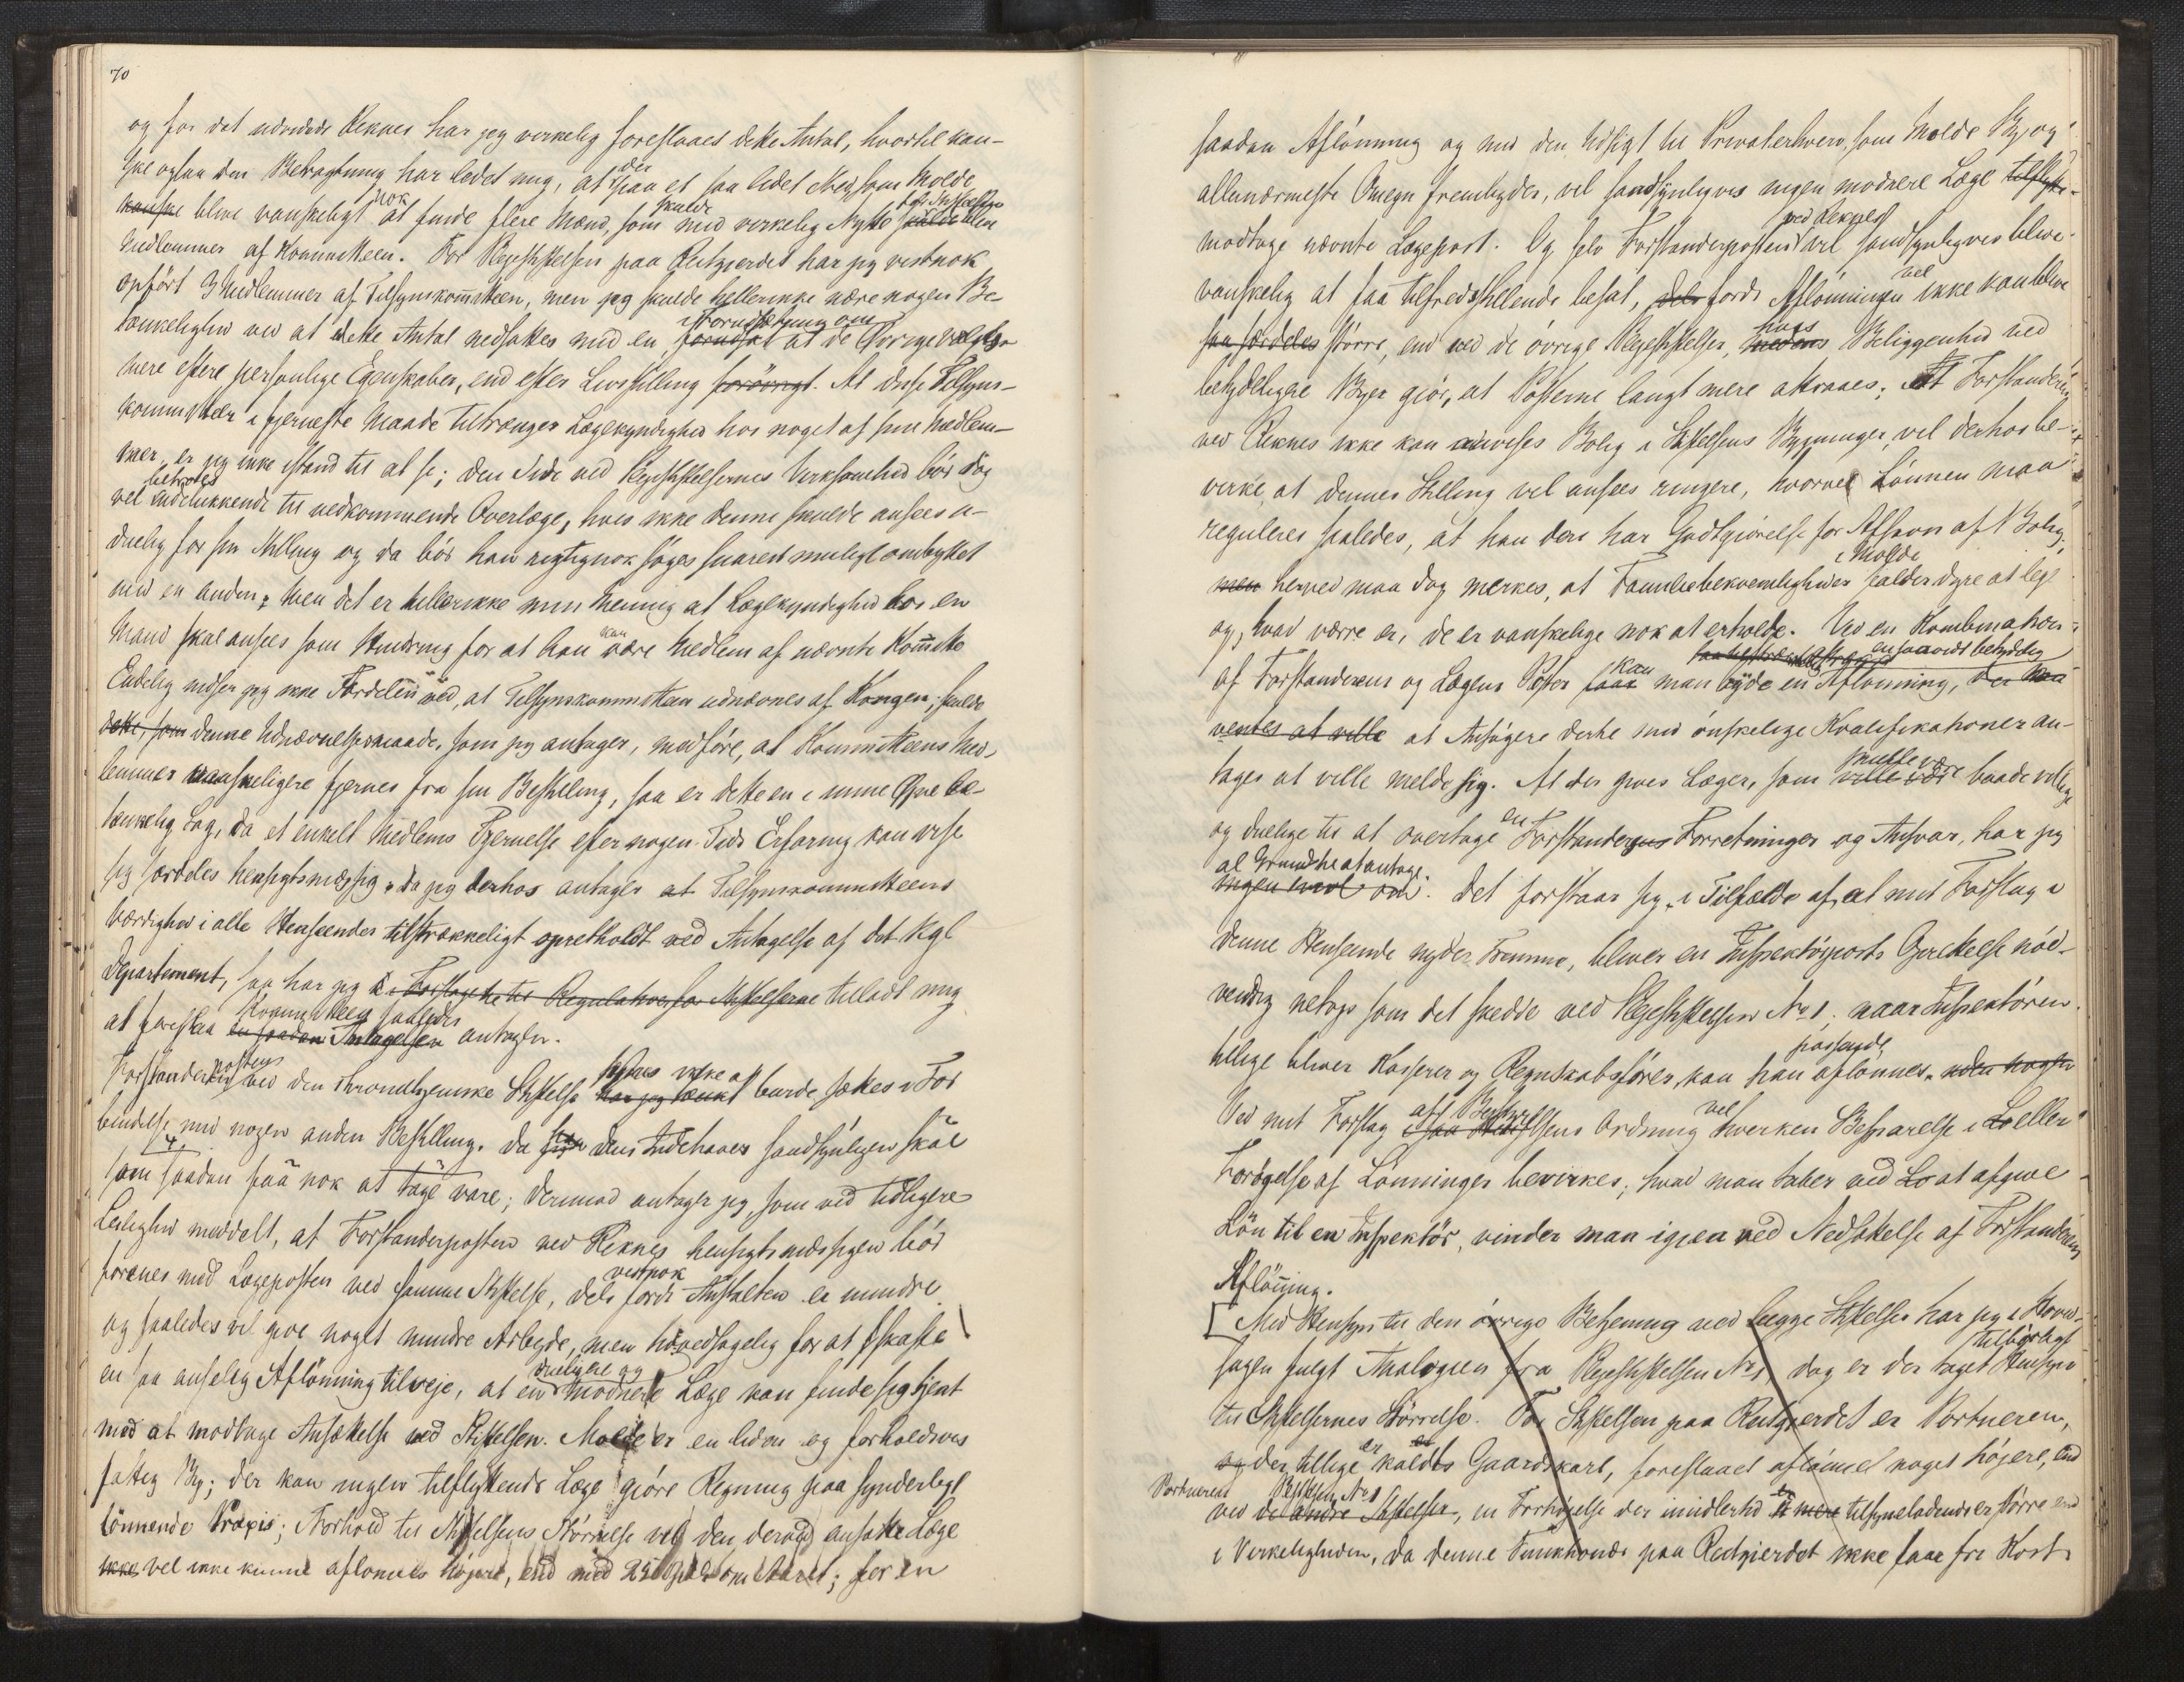 70
og for det udvidede Reknes har jeg virkelig foreslaaet dette Antal, hvortil kan-
ske ogsaa den Betragtning har ledet mig, at der paa et saa lidet Sted som Molde
kanske blive vanskeligt nok at finde flere Mænd, som skulde med virkelig Nytte skulde blive
Medlemmer af Kommitteen. For Plejestiftelsen paa Reitgjerdet har jeg vistnok
opført 3 Medlemmer af Tilsynskommitteen, men jeg skulde hellerikke nære nogen Be-
tænkelighed ved at dette Antal nedsattes med en, i Forudsætning om forudsat at de Øvrige vælges
mere efter personlige Egenskaber, end efter Livsstilling forøvrigt. At disse Tilsyns-
kommitteer i fjerneste Maade tiltrænger Lægekyndighed hos noget af sine Medlem-
mer, er jeg ikke istand til at se; den Side ved Plejestiftelsernes Virksomhed bør dog
vel betroes udelukkende til vedkommende Overlæge, hvis ikke denne skulde ansees u-
duelig for sin Stilling og da bør han rigtignok søges snarest muligt ombyttet
med en anden; Men det er hellerikke min Mening at Lægekyndighed hos en
Mand skal ansees som Hindring for at han kan være Medlem af nævnte Komitte
Endelig indser jeg ikke Fordelen ved, at Tilsynskommitteen udnævnes af Kongen; skulde
dette, som denne Udnævnelsesmaade, som jeg antager, medføre, at Kommitteens Med-
lemmer vanskeligere fjernes fra sin Bestilling, saa er dette en i mine Øjne be-
tænkelig Sag, da et enkelt Medlems Fjernelse efter nogen Tids Erfaring kan vise
sig særdeles hensigtsmæssig. Da jeg derhos antager at Tilsynskommitteens
Værdighed i alle Henseender tilstrækkeligt opretholdt ved Antagelse af det Kgl
Departement, saa har jeg i Forslagene til Regulativer for Stiftelserne tilladt mig
at foreslaa Kommitteen saaledes en saadan Antagelsen antagen.
Forstanderpostens ved den throndhjemske Stiftelse synes ikke at har jeg tænkt burde sættes i For
bindelse med nogen anden Bestilling. Da dens Indehaver sandsynligen skal
som saadan faa nok at tage vare; derimod antager jeg, som ved tidligere
Leilighed meddelt, at Forstanderposten ved Reknes hensigtsmæssigen bør
forenes med Lægeposten ved samme Stiftelse, dels fordi vistnok Anstalten er mindre
og saaledes vil give noget mindre Arbejde, men hovedsagelig for at skaffe
en saa anselig Aflønning tilveje, at en dueligere og modnere Læge kan finde sig tjent
med at modtage Ansættelse ved Stiftelsen. Molde er en liden og forholdsvis
fattig By; der kan ingen tilflyttende Læge gjøre Regning paa synderligt
lønnende Praxis; Forhold til Stiftelsens Størrelse vil den derved ansatte Læge
ikke vel ikke kunne aflønnes højere, end med 250 Spd om Aaret; for en
saadan Aflønning og med den Udsigt til Privaterhverv, som Molde By og
allernærmeste Omegn frembyder, vil sandsynligvis ingen modnere Læge tilflytte
modtage nævnte Lægepost. Og selv Forstanderposten ved Reknes vil sandsynligvis blive
vanskelig at faa tilfredsstillende besat, dels fordi Aflønningen vel ikke kan blive
saa særdeles større, end ved de øvrige Plejestiftelser, medens hvis Beliggenhed ved
betydeligere Byer gjør, at Posterne langt mere attraaes; At Forstanderen
ved Reknes ikke kan anvises Bolig i Stiftelsens Bygninger, vil derhos be-
virke, at dennes Stilling vil ansees ringere, hvorvel Lønnen maa
reguleres saaledes, at han deri har Godtgjørelse for Afsavn af Bolig;
men herved maa dog merkes, at Familiebekvemligheder i Molde falder dyre at leje
og, hvad værre er, de er vanskelige nok at erholde. Ved en Kombination
af Forstanderens og Lægens Poster kan man byde en en saavidt betydelig Aflønning, der kan
ventes at ville at Ansøgere dertil med ønskelige Kvalifikationer an-
tages at ville melde sig. At der gives Læger, som skulle være ville være baade villige
og duelige til at overtage en Forstanderens Forretninger og Ansvar, har jeg
al Grund til at antage.
ingen Tvivl om. Det forstaar sig, i Tilfælde af, at mit Forslag i
denne Henseende nyder Fremme, bliver en Inspektørposts Oprettelse nød-
vendig netop som det skedde ved Plejestiftelsen No 1, naar Inspektøren
tillige bliver Kasserer og Regnskabsfører, kan han passende aflønnes.
Ved mit Forslag af Bestyrelsens Ordning vil hverken Besparelse i eller
Forøgelse af Lønninger bevirkes; hvad man taber ved at afgive
Løn til en Inspektør, vinder man igjen ved Nedsættelse af Forstanderens
Aflønning.
[Med Hensyn til den øvrige Betjening ved begge Stiftelser har jeg i Hoved-
sagen fulgt Analogien fra Plejestiftelsen No 1, dog er der taget tilbørligt Hensyn
til Stiftelsernes Størrelse. For Stiftelsen paa Reitgjerdet er Portneren,
og der tillige er kaldes Gaardskarl, foreslaaet aflønnet noget højere, end
Portneren ved Stiftelsen No 1 de andre Stiftelser, en Forhøjelse der imidlertid er mere tilsyneladende er større end
i Virkeligheden, da denne Funktionær paa Reitgjerdet ikke faar fri Kost